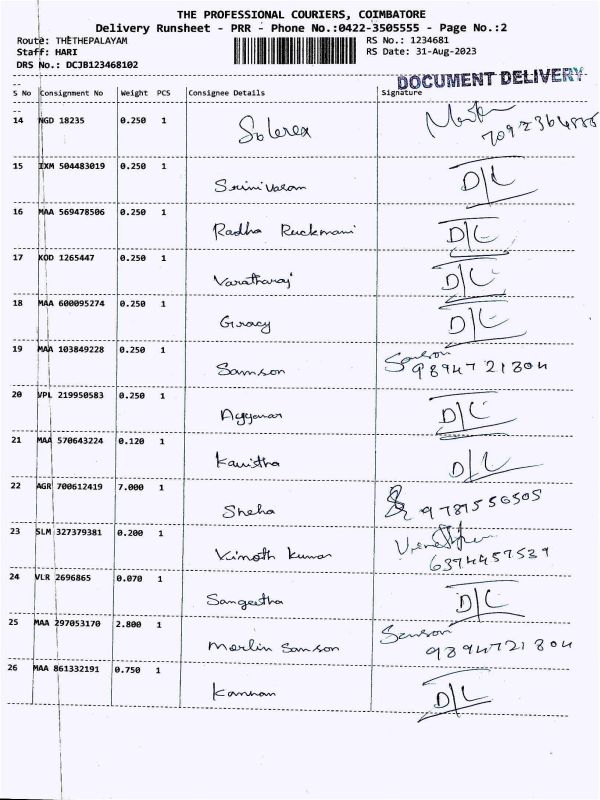 THE PROFESSIONAL COURIERS, COIMBATORE
Delivery Runsheet - PRR - Phone No.:0422-3505555 - Page No.:2
Route: THETHEPALAYAM RS No.: 1234681
Staff: HARI RS Date: 31-Aug-2023
DRS No.: DCJB123468102
DOCUMENT DELIVERY
S No Consignment No Weight PCS Consignee Details Signature
14 NGD 18235 0.250 1 Solerex
15 IXM 504483019 0.250 1 Srinivasan D/L
16 MAA 569478506 0.250 1 Radha Ruckmani D/L
17 KOD 1265447 0.250 1 Varatharaj D/L
18 MAA 600095274 0.250 1 Gracy D/L
19 MAA 103849228 0.250 1 Samson Samson
9894721804
20 VPL 219950583 0.250 1 Ayyanar D/L
21 MAA 570643224 0.120 1 Kavistha D/L
22 AGR 700612419 7.000 1 Sneha 9781556505
23 SLM 327379381 0.200 1 Vinoth Kumar
6374457539
24 VLR 2696865 0.070 1 Sangeetha D/L
25 MAA 297053170 2.800 1 Merlin Samson Samson
9894721804
26 MAA 861332191 0.750 1 Kannan D/L